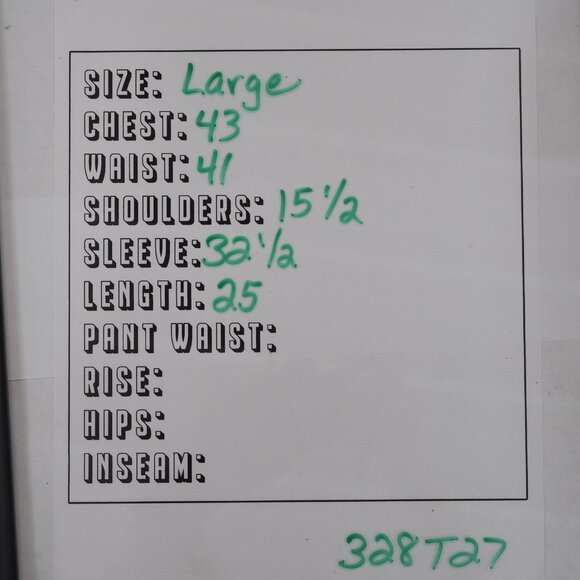 SIZE: Large
CHEST: 43
WAIST: 41
SHOULDERS: 15 1/2
SLEEVE: 32 1/2
LENGTH: 25
PANT WAIST:
RISE:
HIPS:
INSEAM:
328T27